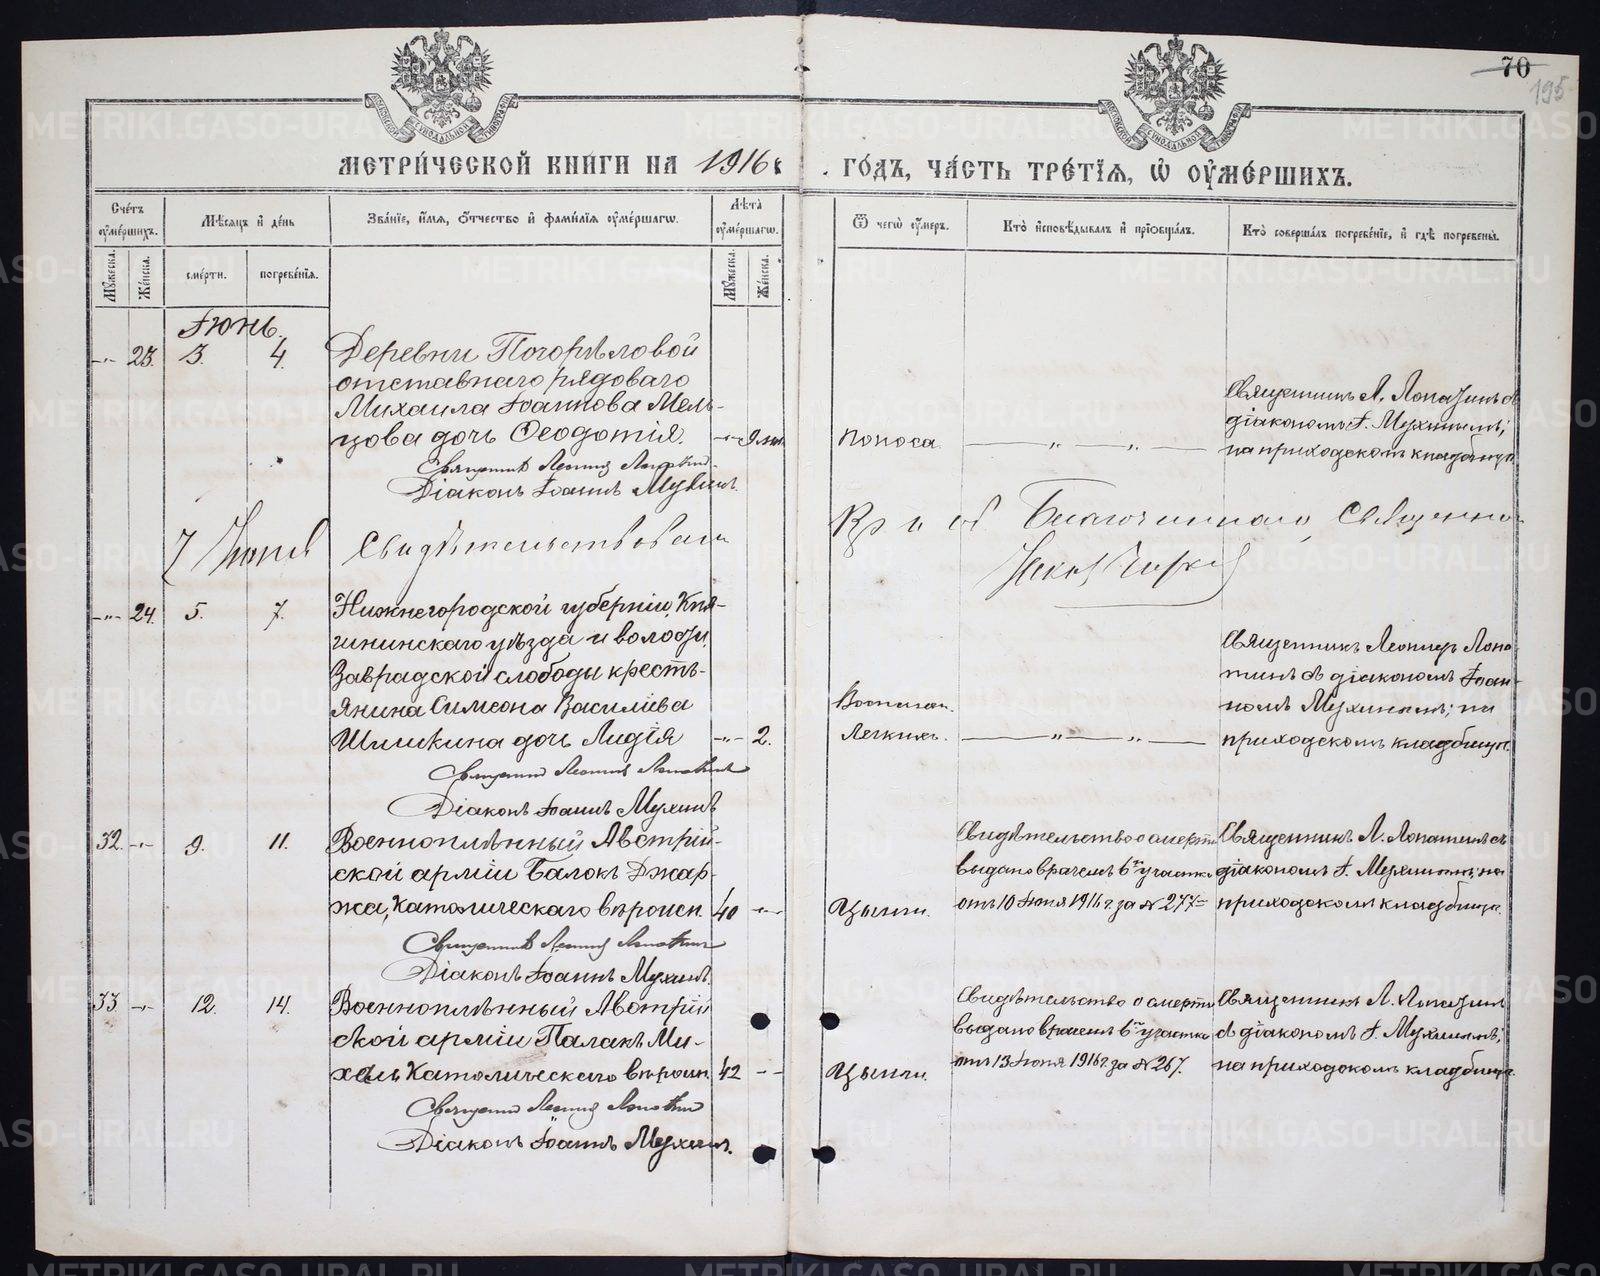 70
195
МЕТРИЧЕСКОЙ КНИГИ НА 1916 ГОДЪ, ЧАСТЬ ТРЕТІЯ, Ѡ ОУМЕРШИХЪ.
Счетъ оумершихъ.
Мѣсяцъ и день
Званіе, имя, отчество и фамилія оумершагѡ.
Лѣта оумершагѡ.
Ѿ чегѡ оумеръ.
Кто исповѣдывалъ и пріобщалъ.
Кто совершалъ погребеніе, и гдѣ погребены.
Мужеска.
Женска.
смерти.
погребенія.
Мужеска.
Женска.
Іюнь.
-"- 23. 3. 4.
Деревни Погорѣловой
отставнаго рядоваго
Михаила Іоаннова Мель-
цова дочь Ѳеодотія.
Священникъ Леонид Лопатин
Діаконъ Іоаннъ Мухинъ.
Поноса.
Священникъ Л. Лопатинъ съ
діакономъ І. Мухинымъ;
на приходскомъ кладбищѣ
7 Іюня Свидѣтельствовалъ
Благочиннаго, Священникъ
-"- 24. 5. 7.
Нижнегородской губерніи, Кня-
гининскаго уѣзда и волости,
слободы кресть-
янина Симеона Василіева
Шишкина дочь Лидія -"- 2.
Священникъ Леонид Лопатин
Діаконъ Іоаннъ Мухинъ
Воспален.
Легкихъ.
Священникъ Леонидъ Лопа-
тинъ съ діакономъ Іоан-
номъ Мухинымъ; на
приходскомъ кладбищѣ.
32. -"- 9. 11.
Военноплѣнный Австрій-
ской арміи Балокъ Джар-
жа, Католическаго вѣроисп. 40 -"-
Священникъ Леонид Лопатин
Діаконъ Іоаннъ Мухинъ.
Цынги.
Свидѣтельство о смерти
выдано врачемъ 6го участка
отъ 10 Іюня 1916 г. за № 277=
Священникъ Л. Лопатинъ съ
діакономъ І. Мухинымъ; на
приходскомъ кладбищѣ.
33. -"- 12. 14.
Военноплѣнный Австрій
ской арміи Палакъ Ми-
халь Католическаго вѣроисп. 42 -"-
Священникъ Леонид Лопатин
Діаконъ Іоаннъ Мухинъ.
Цынги.
Свидѣтельство о смерти
выдано врачемъ 6го участка
отъ 13 Іюня 1916 г. за № 267.
Священникъ Л. Лопатинъ
съ діакономъ І. Мухинымъ;
на приходскомъ кладбищѣ.
METRIKI.GASO-URAL.RU